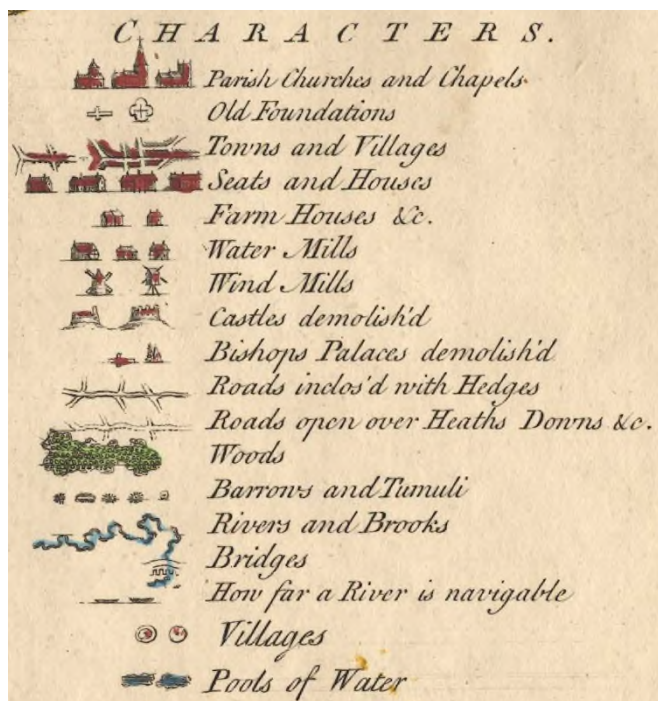 CHARACTERS.
Parish Churches and Chapels
Old Foundations
Towns and Villages
Seats and Houses
Farm Houses &c.
Water Mills
Wind Mills
Castles demolish'd
Bishops Palaces demolish'd
Roads inclos'd with Hedges
Roads open over Heaths Downs &c.
Woods
Barrows and Tumuli
Rivers and Brooks
Bridges
How far a River is navigable
Villages
Pools of Water